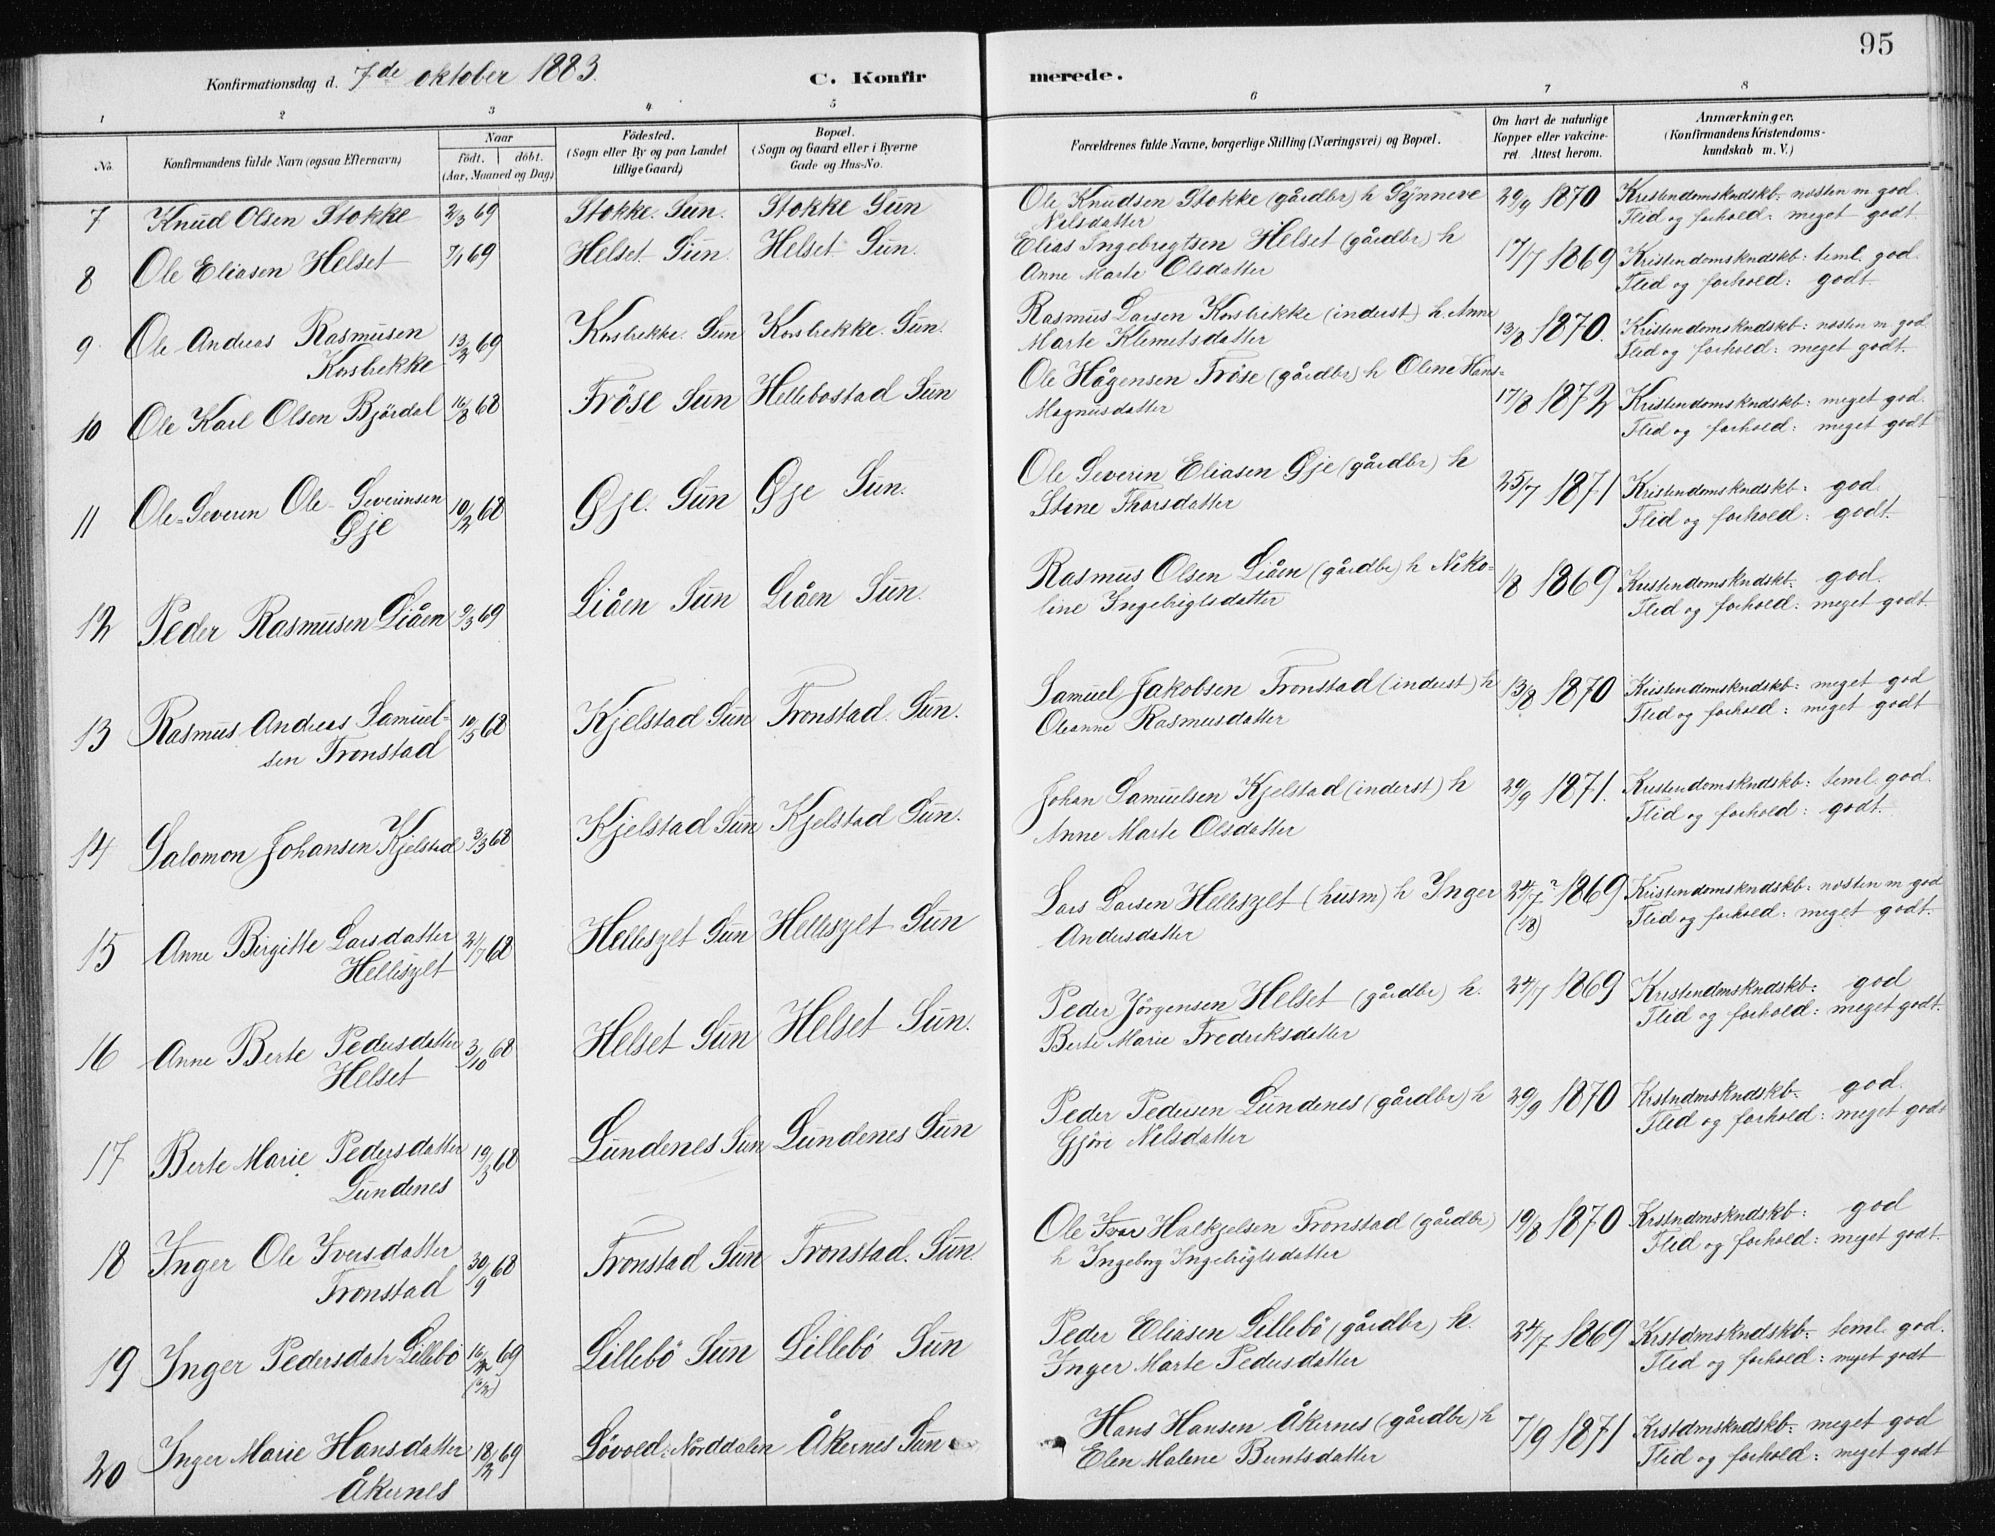 95
Konfirmationsdag d. 7de oktober 1883. C. Konfirmerede.
1 2 3 4 5 6 7 8
No. Konfirmandens fulde Navn (ogsaa Efternavn) Naar født. døbt. (Aar, Maaned og Dag) Fødested. (Sogn eller By og paa Landet tillige Gaard) Bopæl. (Sogn og Gaard eller i Byerne Gade og Hus-No. Forældrenes fulde Navne, borgerlige Stilling (Næringsvei) og Bopæl. Om havt de naturlige Kopper eller vakcineret. Attest herom. Anmærkninger. (Konfirmandens Kristendomskundskab m. V.)
7 Knud Olsen Stokke 2/3 69 Stokke. Sun. Stokke Sun Ole Knudsen Stokke (gårdbr) h Synneve 29/9 1870 Kristendomskndskb: næsten m. god.
Nilsdatter Flid og forhold: meget godt
8 Ole Eliasen Helset 7/1 69 Helset Sun. Helset Sun. Elias Ingebrigtsen Helset (gårdbr) h 17/7 1869 Kristendomskndskb: teml. god.
Anne Marte Olsdatter Flid og forhold: godt
9 Ole Andreas Rasmusen 13/2 69 Korsbrekke. Sun Korsbrekke. Sun. Rasmus Larsen Korsbrekke (inderst) h. Anne 13/8 1870. Kristendomskndskb: næsten m. god
Korsbrekke Marte Klemetsdatter Flid og forhold: meget godt.
10 Ole Karl Olsen Bjørdal 16/8 68 Frøse Sun Hellebostad Sun Ole Hågensen Frøse (gårdbr) h Oline Hans= 17/8 1872 Kristendomskndskb: meget god.
Magnusdatter Flid og forhold: meget godt
11 Ole-Severin Ole-Severinsen 10/2 68 Øje. Sun Øje Sun. Ole Severin Eliasen Øje (gårdbr) h 25/7 1871 Kristendomskndskb: god.
Øje Stine Thorsdatter Flid og forhold: godt.
12 Peder Rasmusen Liåen 2/3 69 Liåen Sun Liåen Sun. Rasmus Olsen Liåen (gårdbr) h Niko= 1/8 1869 Kristendomskndskb. god.
line Ingebrigtsdatter Flid og forhold: meget godt.
13 Rasmus Andreas Samuel- 10/5 68 Kjelstad Sun Tronstad. Sun. Samuel Jakobsen Tronstad (inderst) h 13/8 1870 Kristendomskndskb: meget god
sen Tronstad Oleanne Rasmusdatter Flid og forhold: meget godt
14 Salomon Johansen Kjelstad 3/3 68 Kjelstad Sun Kjelstad Sun. Johan Samuelsen Kjelstad (inderst) h 29/9 1871. Kristendomskndskb: teml. god.
Anne Marte Olsdatter Flid og forhold: godt.
15 Anne Birgitte Larsdatter 21/7 68 Hellisylt Sun Hellisylt Sun Lars Larsen Hellisylt (husm) h Inger 24/7? 1869 Kristendomskndskb: næsten m god
Hellisylt Andersdatter (1/8) Flid og forhold: meget godt.
16 Anne Berte Pedersdatter 3/10 68 Helset Sun Helset Sun. Peder Jørgensen Helset (gårdbr) h. 24/7 1869 Kristendomskndskb: god
Helset Berte Marie Fredriksdatter Flid og forhold: meget godt.
17 Berte Marie Pedersdatter 19/5 68 Lundenes Sun Lundenes Sun Peder Pedersen Lundenes (gårdbr) h 29/9 1870 Krstndmskndskb. god.
Lundenes Gjøre Nilsdatter Flid og forhold: meget godt
18 Inger Ole Iversdatter 30/9 68 Tronstad Sun Tronstad. Sun. Ole Ivar Halkjelsen Tronstad (gårdbr) 19/8 1870 Krstndmskndskb: god
Tronstad h Ingeborg Ingebrigtsdatter Flid og forhold: meget godt.
19 Inger Pedersdatr Lillebø 16/2 69 Lillebø Sun Lillebø Sun Peder Eliasen Lillebø (gårdbr) h. 24/7 1869 Krstdmskndskb. teml. god.
Inger Marte Pedersdatter Flid og forhold: meget godt
20 Inger Marie Hansdatter 18/2 69 Løvold. Norddalen Åkernes Sun Hans Hansen Åkernes (gårdbr) h 7/9 1871 Krstdmskndskb. meget god
Åkernes Elen Malene Buntsdatter Flid og forhold: meget godt